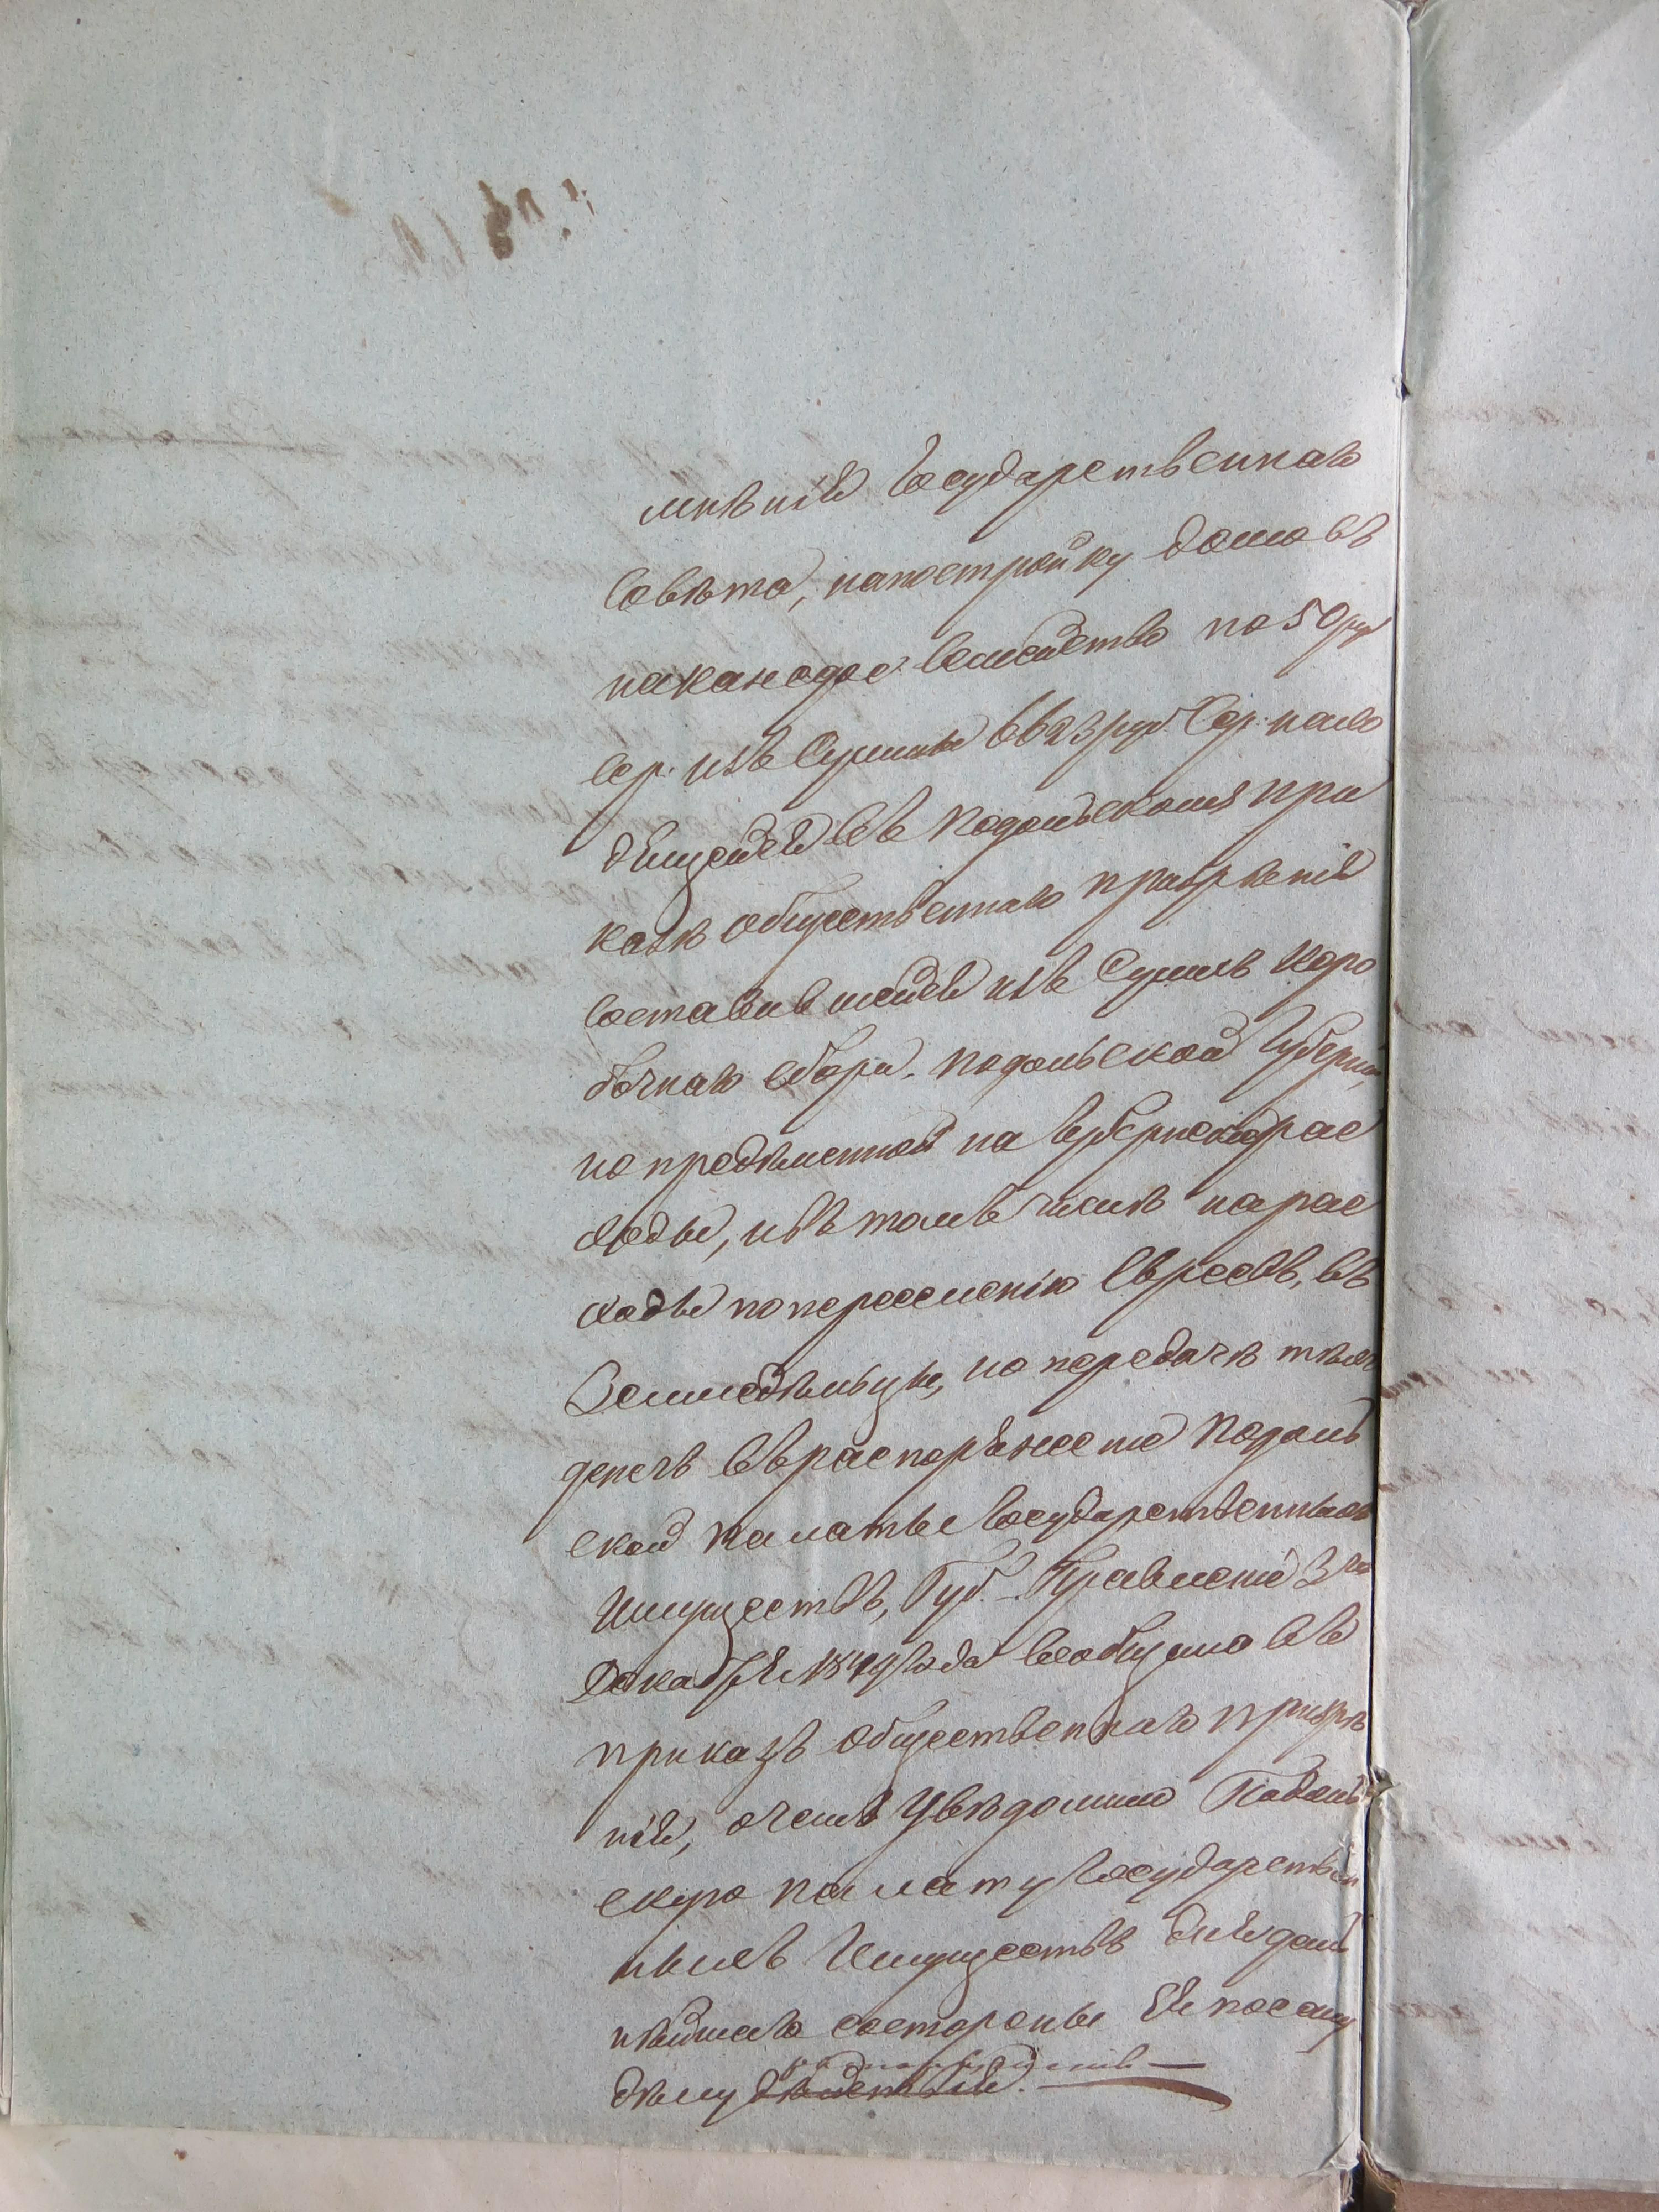 мнѣнія Государственнаго
Совѣта, на постройку домовъ
на каждое Семейство по 50 руб
Сер. изъ Суммы 6623 руб. Сер. нахо
дящейся въ Подольскомъ При
казѣ Общественнаго Призрѣнія
составившейся изъ Суммъ Коро
бочнаго сбора Подольской Губерніи,
но предѣленной на Губернскіе рас
ходы, и въ томъ числѣ на рас
ходы по переселенію Евреевъ, въ
Земледѣльцы, но передачѣ тѣхъ
денегъ въ распоряженіе Подоль
ской Палаты Государственныхъ
Имуществъ, Губ. Правленіе 3 го
Декабря 1849 года сообщило въ
Приказъ Общественнаго Призрѣ
нія, о чемъ увѣдомило Подоль
скую Палату Государствен
ныхъ Имуществъ для даль
нѣйшаго состороны Ея по сему
дѣлу